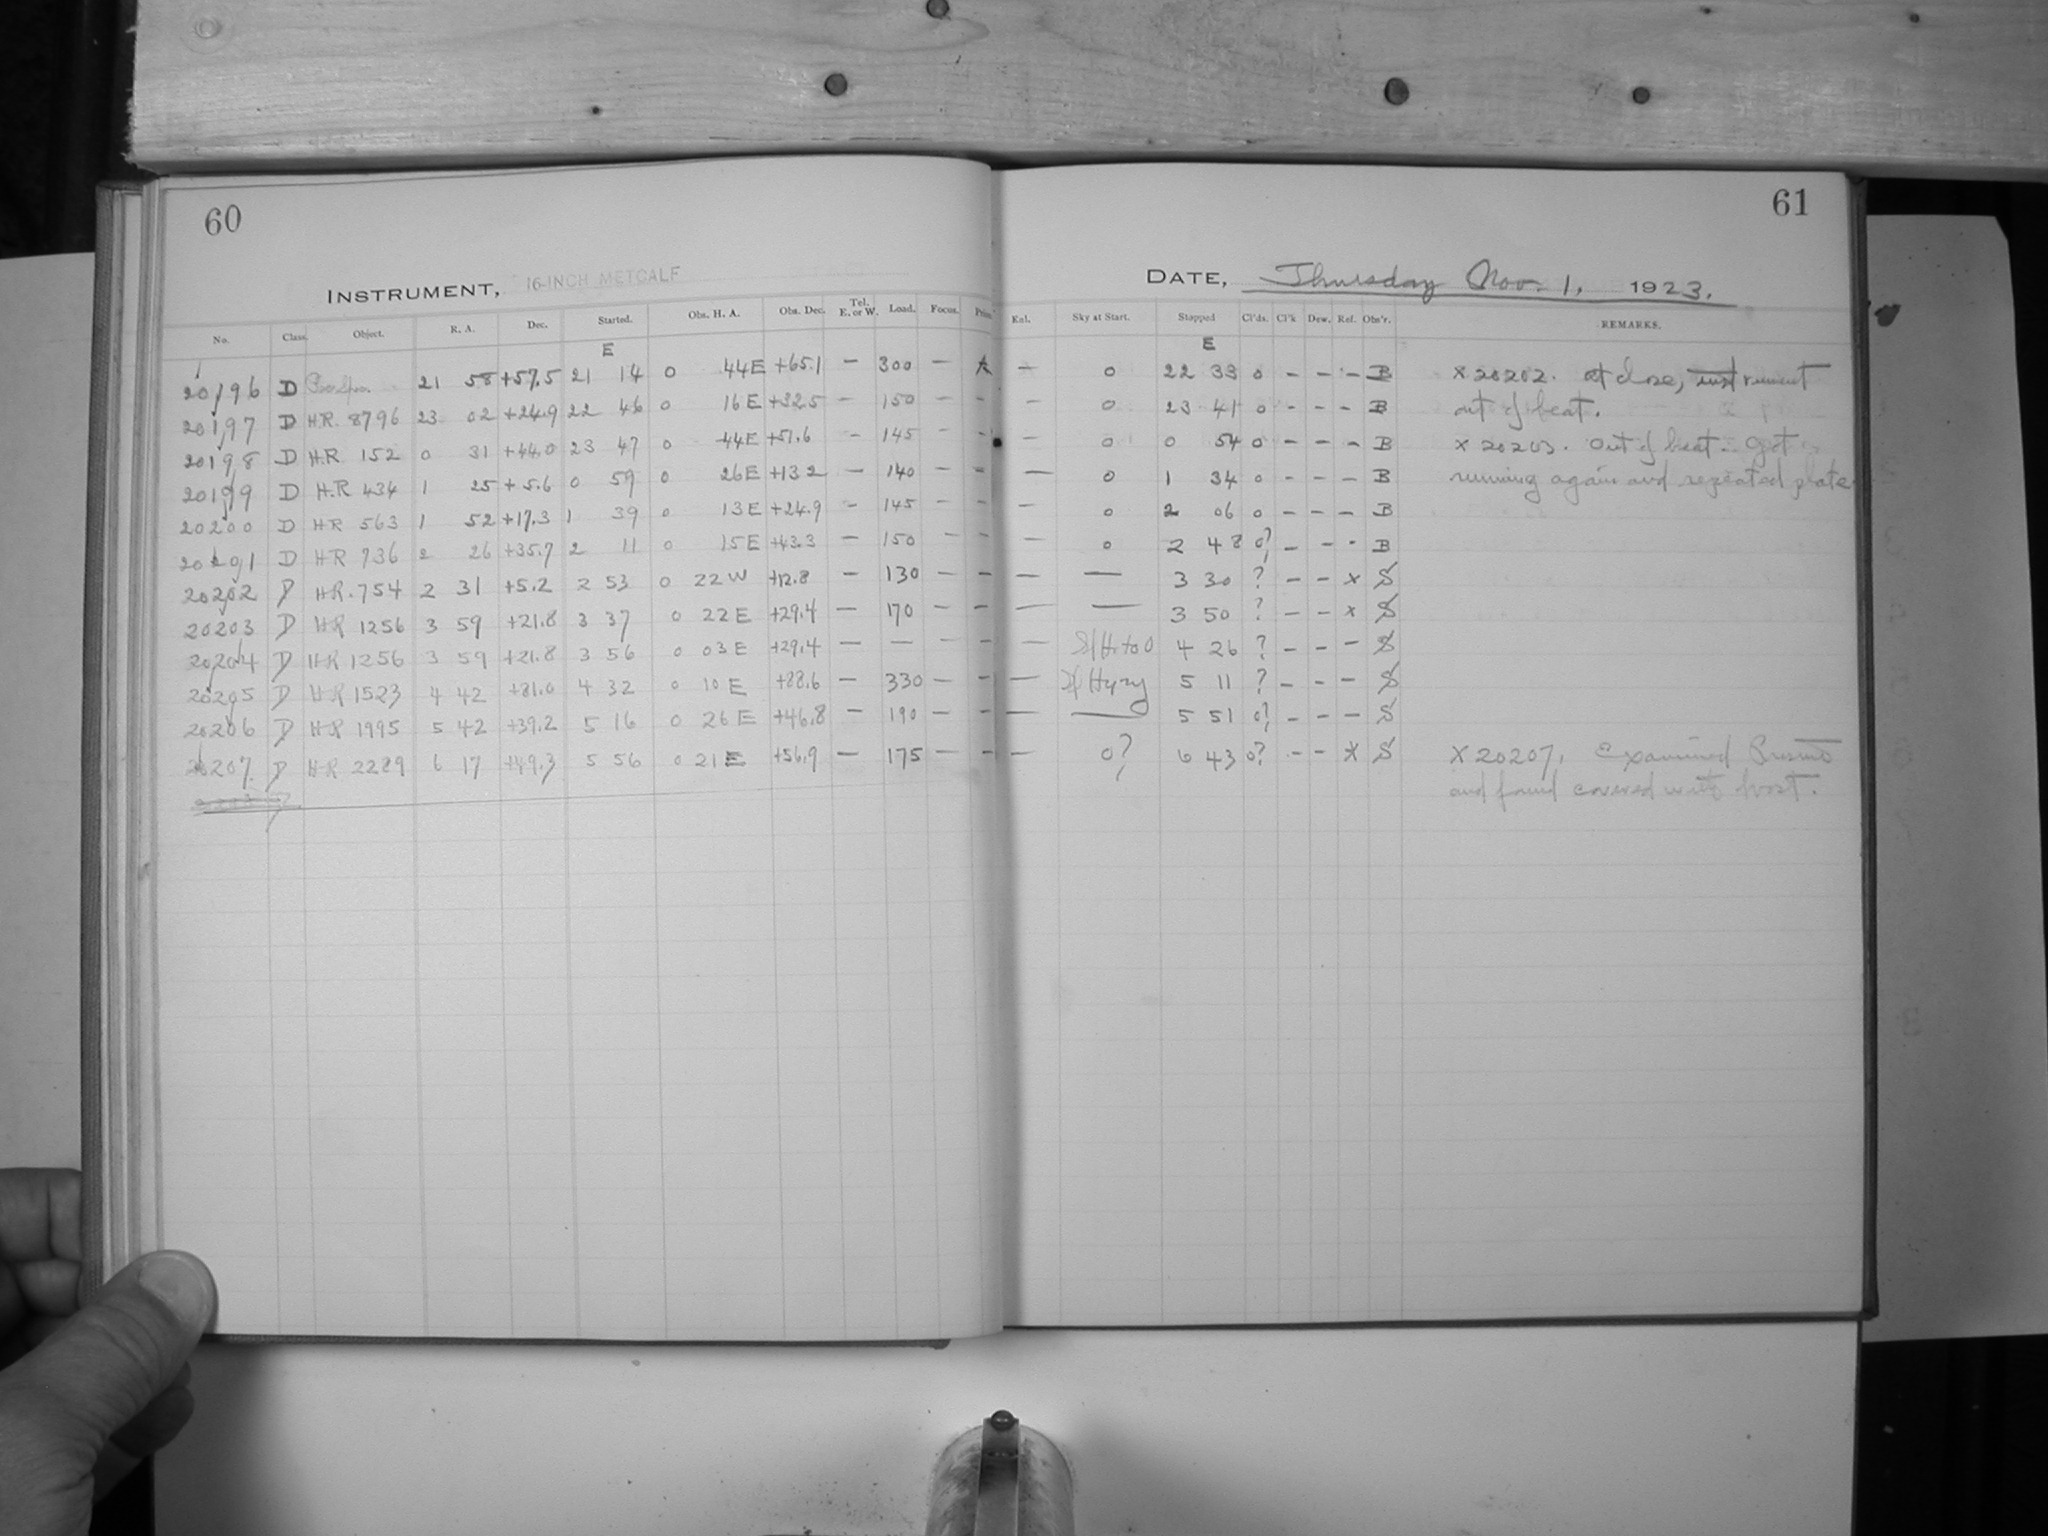 60
61
INSTRUMENT, 16-INCH METCALF
DATE, Thursday Nov. 1, 1923.
No. Class. Object. R. A. Dec. Started. Obs. H. A. Obs. Dec. Tel. E. or W. Load. Focus. Prism. Knl. Sky at Start. Stopped Cl'ds. Cl'k Dew. Ref. Obs'r. REMARKS.
E E
20196 D 21 58 +57.5 21 14 0 44E +65.1 — 300 — A — 0 22 33 0 - - - B X 20202. at close, instrument
20197 D H.R. 8796 23 02 +24.9 22 46 0 16E +32.5 — 150 - - — 0 23 41 0 - - - B out of beat.
20198 D H.R. 152 0 31 +44.0 23 47 0 44E +51.6 - 145 - - — 0 0 54 0 - - - B X 20203. Out of beat. Got
20199 D H.R 434 1 25 +5.6 0 59 0 26E +13.2 — 140 - - — 0 1 34 0 - - - B running again and repeated plate
20200 D HR 563 1 52 +17.3 1 39 0 13E +24.9 - 145 - - — 0 2 06 0 - - - B
20201 D HR 736 2 26 +35.7 2 11 0 15E +43.3 — 150 - - — 0 2 48 0? - - - B
20202 D HR. 754 2 31 +5.2 2 53 0 22W +12.8 — 130 - - — — 3 30 ? - - x S
20203 D HR 1256 3 59 +21.8 3 37 0 22E +29.4 — 170 - - — — 3 50 ? - - x S
20204 D HR 1256 3 59 +21.8 3 56 0 03E +29.4 — — - - — 4 26 ? - - - S
20205 D HR 1523 4 42 +81.0 4 32 0 10E +88.6 — 330 - - — 5 11 ? - - - S
20206 D HR 1995 5 42 +39.2 5 16 0 26E +46.8 — 190 - - — — 5 51 0? - - - S
20207 D HR 2289 6 17 +49.3 5 56 0 21E +56.9 — 175 - - — 0? 6 43 0? - - x S X 20207. Examined Prisms
and found covered with frost.